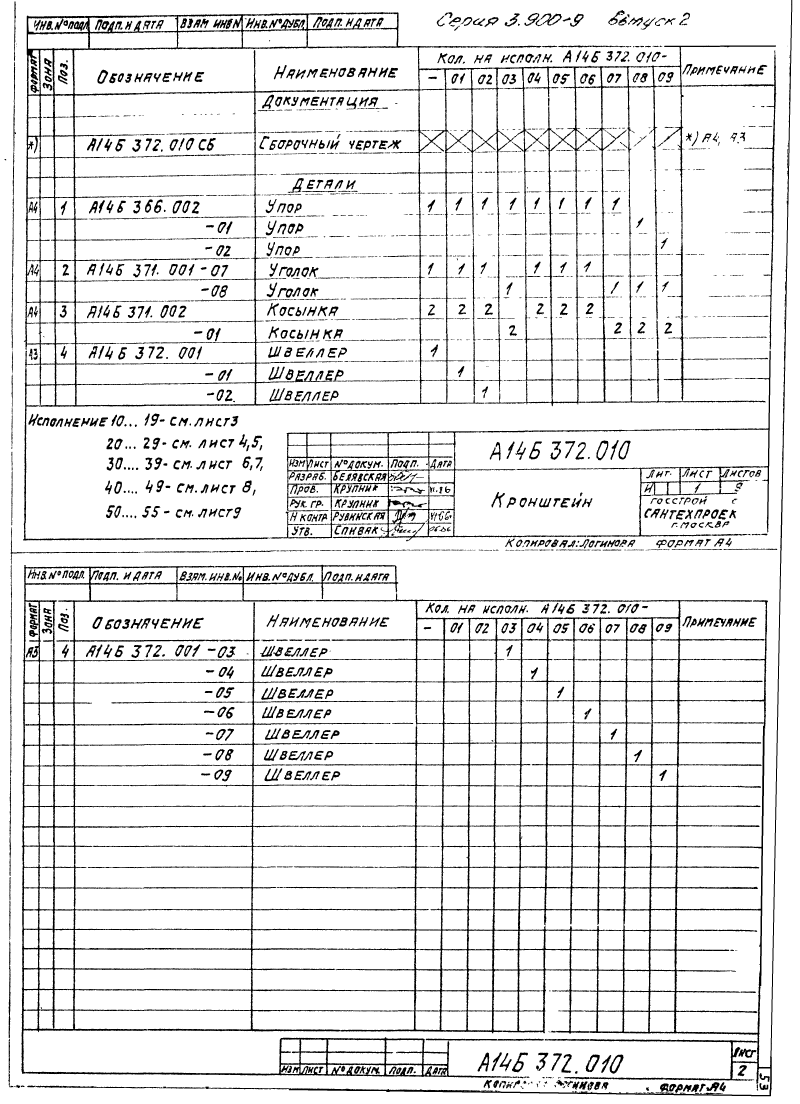 Серия 3.900-9 выпуск 2
Инв.№подл Подп. и дата Взам инв№ Инв.№дубл. Подп. и дата
Формат Зона Поз. Обозначение Наименование Кол. на исполн. А14Б 372.010- Примечание
- 01 02 03 04 05 06 07 08 09
Документация
*) А14Б 372.010 СБ Сборочный чертеж *) А4, А3
Детали
А4 1 А14Б 366.002 Упор 1 1 1 1 1 1 1 1
-01 Упор 1
-02 Упор 1
А4 2 А14Б 371.001-07 Уголок 1 1 1 1 1 1
-08 Уголок 1 1 1 1
А4 3 А14Б 371.002 Косынка 2 2 2 2 2 2
-01 Косынка 2 2 2 2
А3 4 А14Б 372.001 Швеллер 1
-01 Швеллер 1
-02 Швеллер 1
Исполнение 10... 19- см. лист 3
20... 29- см. лист 4,5,
30.... 39- см. лист 6,7,
40.... 49- см. лист 8,
50.... 55- см. лист 9
А14Б 372.010
Изм Лист №докум. Подп. Дата
Разраб. Белявская
Пров. Крупник
Рук. гр. Крупник
Н контр Рувинская
Утв. Спивак
Кронштейн
Лит. Лист Листов
И 1 9
Госстрой с
Сантехпроек
г. Москва
Копировал: Логинова Формат А4
Инв.№подл Подп. и дата Взам. инв.№ Инв.№дубл. Подп. и дата
Формат Зона Поз. Обозначение Наименование Кол. на исполн. А14Б 372.010- Примечание
- 01 02 03 04 05 06 07 08 09
А3 4 А14Б 372.001-03 Швеллер 1
-04 Швеллер 1
-05 Швеллер 1
-06 Швеллер 1
-07 Швеллер 1
-08 Швеллер 1
-09 Швеллер 1
Изм Лист №докум. Подп. Дата
А14Б 372.010
Лист
2
Логинова Формат А4
53